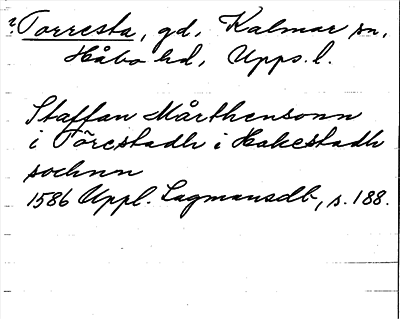 ? Torresta, gd, Kalmar sn,
Håbo hd, Upps. l.
Staffan Mårthensonn
i Törestadh i Hakestadh
sochnn
1586 Uppl. Lagmansdb, s. 188.